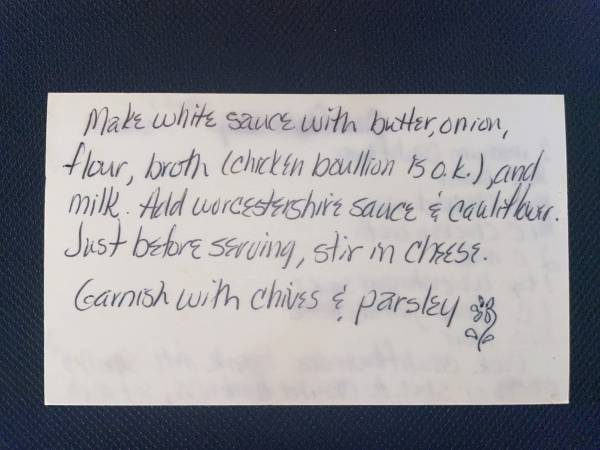 Make white sauce with butter, onion,
flour, broth (chicken boullion is o.k.), and
milk. Add worcestershire sauce & cauliflower.
Just before serving, stir in cheese.
Garnish with chives & parsley